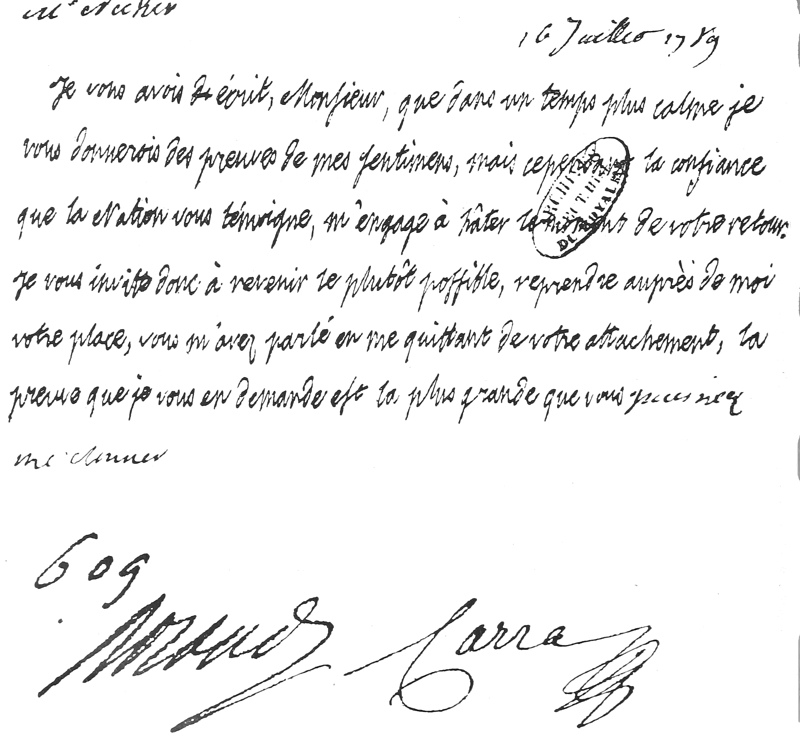 Mr Necker
16 Juillet 1789
Je vous avois écrit, Monsieur, que dans un temps plus calme je
vous donnerois des preuves de mes sentimens, mais cependant la confiance
que la Nation vous témoigne, m'engage à hâter le moment de votre retour.
Je vous invitte donc à revenir le plutôt possible, reprendre auprès de moi
votre place, vous m'avez parlé en me quittant de votre attachement, la
preuve que je vous en demande est la plus grande que vous puissiez
me donner
609
Carra